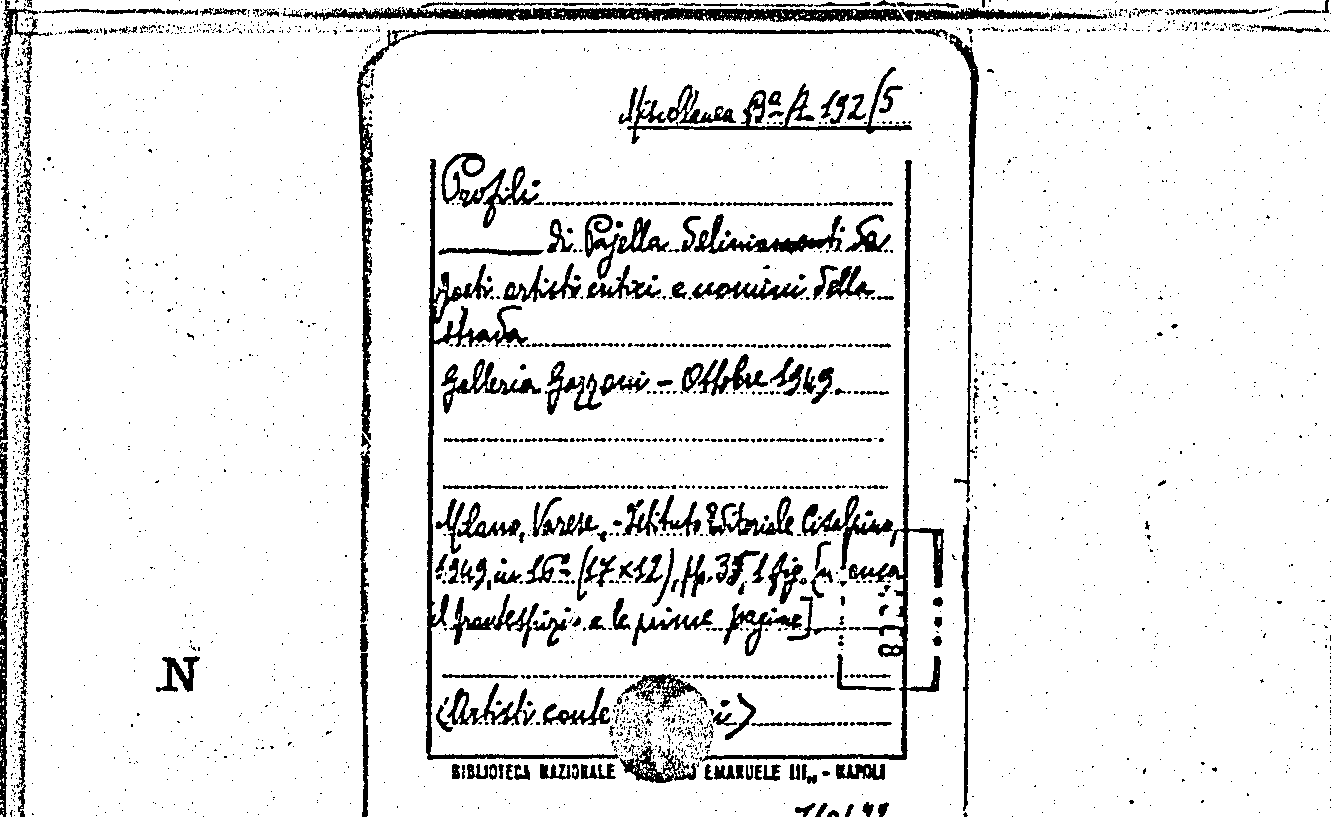 Miscellanea Bª A 192/5
Profili
di Pajella delineamenti da
poeti artisti critici e uomini della
strada
Galleria Gazzani - Ottobre 1949.
Milano, Varese, - Istituto Editoriale Cisalpino,
1949, in 16º (17×12), pp. 35, 1 fig. [manca
il frontespizio e le prime pagine]
8
N
(Artisti conte
BIBLIOTECA NAZIONALE " EMANUELE III„ - NAPOLI